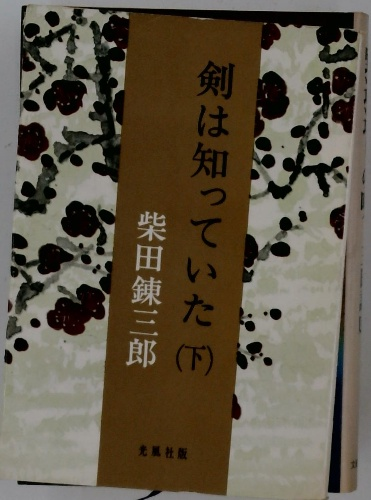 剣は知っていた(下)
柴田錬三郎
光風社版